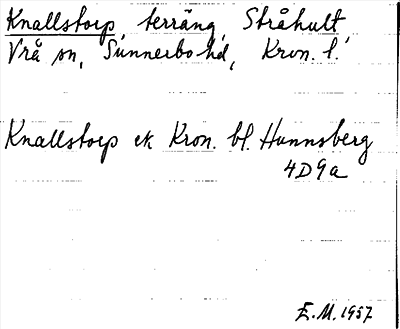 Knallstorp, terräng, Stråhult,
Vrå sn, Sunnerbo hd, Kron. l.
Knallstorp ek Kron. bl. Hunnsberg
4D9a
E.M. 1957